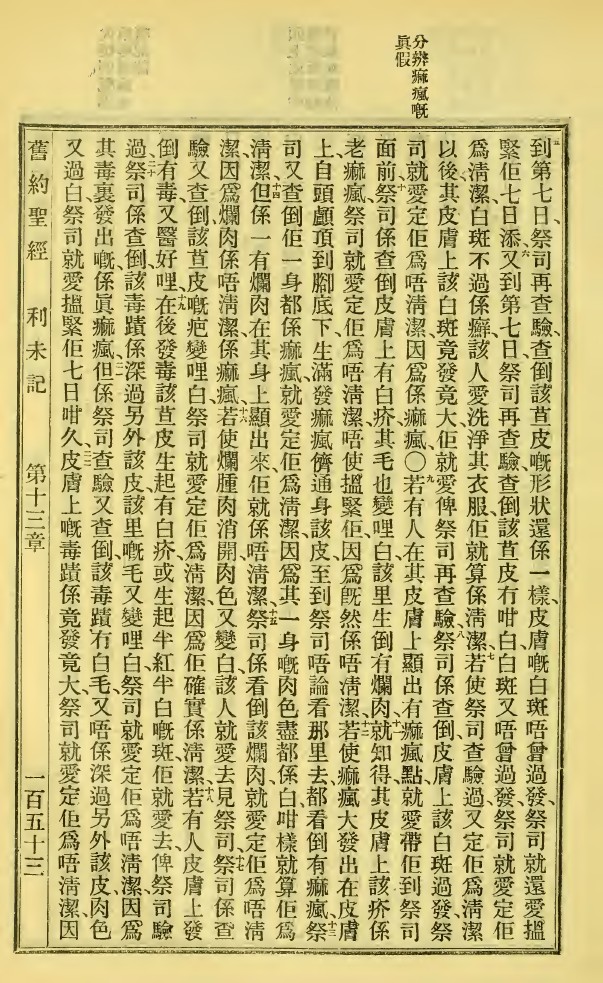 分辨痲瘋嘅
眞假
五到第七日、祭司再查驗、查倒該荁皮嘅形狀還係一樣、皮膚嘅白斑唔曾過發、祭司就還愛搵
緊佢七日添、六又到第七日、祭司再查驗、查倒該荁皮冇咁白、白斑又唔曾過發、祭司就愛定佢
爲清潔、白斑不過係癬、該人愛洗淨其衣服、佢就算係清潔、七若使祭司查驗過、又定佢爲清潔、
以後其皮膚上該白斑竟發竟大、佢就愛俾祭司再查驗、八祭司係查倒皮膚上該白斑過發、祭
司就愛定佢爲唔清潔、因爲係痲瘋、〇九若有人在其皮膚上顯出有痲瘋點、就愛帶佢到祭司
面前、十祭司係查倒皮膚上有白疥、其毛也變哩白、該里生倒有爛肉、十一就知得其皮膚上該疥係
老痲瘋、祭司就愛定佢爲唔清潔、唔使搵緊佢、因爲既然係唔清潔、十二若使痲瘋大發出在皮膚
上、自頭顱頂到腳底下、生滿發痲瘋、儕通身該皮、至到祭司唔論看那里去、都看倒有痲瘋、十三祭
司又查倒佢一身都係痲瘋、就愛定佢爲清潔、因爲其一身嘅肉色盡都係白、咁樣就算佢爲
清潔、十四但係一有爛肉在其身上顯出來、佢就係唔清潔、十五祭司係看倒該爛肉、就愛定佢爲唔清
潔、因爲爛肉係唔清潔、係痲瘋、十六若使爛腫肉消開、肉色又變白、該人就愛去見祭司、十七祭司係查
驗、又查倒該荁皮嘅疤變哩白、祭司就愛定佢爲清潔、因爲佢確實係清潔、十八若有人皮膚上發
倒有毒、又醫好哩、十九在後發毒該荁皮生起有白疥、或生起半紅半白嘅斑、佢就愛去俾祭司驗
過、二十祭司係查倒、該毒蹟係深過另外該皮、該里嘅毛又變哩白、祭司就愛定佢爲唔清潔、因爲
其毒裏發出嘅、係眞痲瘋、二一但係祭司查驗、又查倒該毒蹟冇白毛、又唔係深過另外該皮、肉色
又過白、祭司就愛搵緊佢七日咁久、二二皮膚上嘅毒蹟係竟發竟大、祭司就愛定佢爲唔清潔、因
舊約聖經 利未記 第十三章 一百五十三